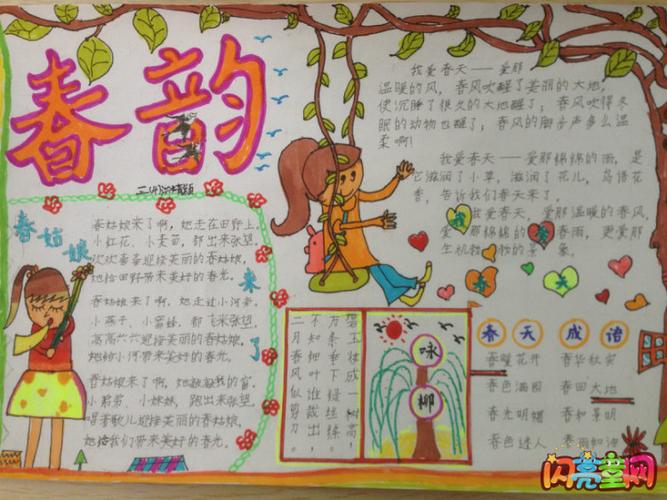 春韵
春姑娘来了
春姑娘来了啊,她走在田野上。
小红花、小麦苗,都出来张望。
她给田野带来美好的春光。
春姑娘来了啊,她走过小河旁。
小燕子、小蜜蜂,都飞来张望。
高高兴兴迎接美丽的春姑娘。
她给小河带来美好的春光。
小弟弟、小妹妹,跑出来张望。
唱着歌儿迎接美丽的春姑娘,
她给我们带来美好的春光。
我爱春天——爱那
温暖的风,春风吹醒了美丽的大地,
使沉睡了很久的大地醒了;春风吹得冬
眠的动物也醒了;春风的脚步声多么温
柔啊!
我爱春天——爱那绵绵的雨,是
它滋润了小草,滋润了花儿,鸟语花
香,告诉我们春天来了。
我爱春天,爱那温暖的春风,
爱那绵绵的春雨,更爱那
生机勃勃的景象。
我爱春天
碧玉妆成一树高,
万条垂下绿丝绦。
不知细叶谁裁出,
二月春风似剪刀。
咏柳
春天成语
春暖花开 春华秋实
春色满园 春回大地
春光明媚 春和景明
春色迷人 春雨如油
闪亮童网